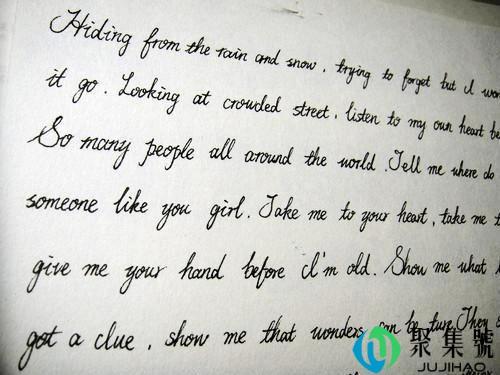 Hiding from the rain and snow, trying to forget but I won
it go. Looking at crowded street, listen to my own heart be
So many people all around the world. Tell me where do
someone like you girl. Take me to your heart, take me t
give me your hand before I'm old. Show me what l
got a clue, show me that wonders can be true. They
聚集號
JUJIHAO